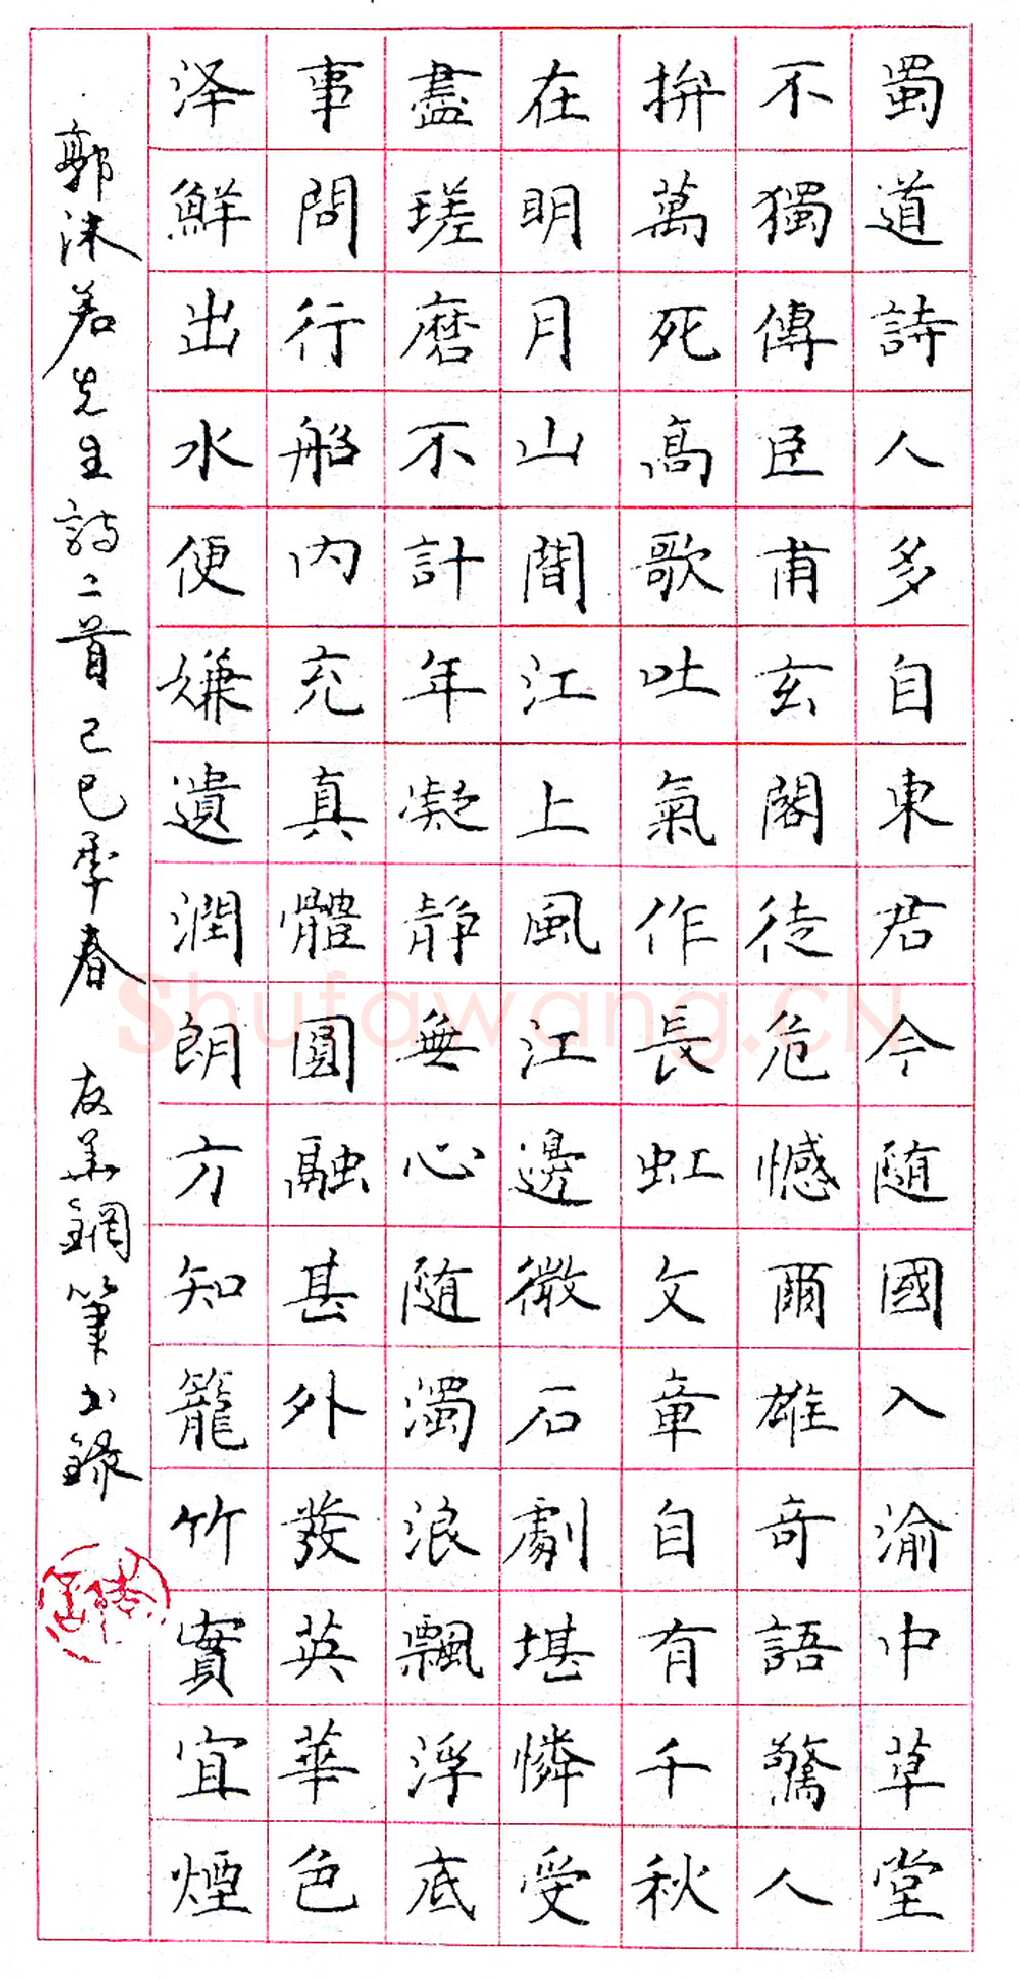 蜀道詩人多自東君今随國入渝中草堂
不獨傳臣甫玄閣徒危憾爾雄奇語驚人
拚萬死高歌吐氣作長虹文章自有千秋
在明月山間江上風江邊微石劇堪憐受
盡瑳磨不計年凝静無心随濁浪飄浮底
事問行船內充真體圓融甚外發英華色
泽鮮出水便嫌遺潤朗方知籠竹實宜煙
郭沫若先生詩二首己巳季春 友其鋼筆书錄
Shufawang.CN